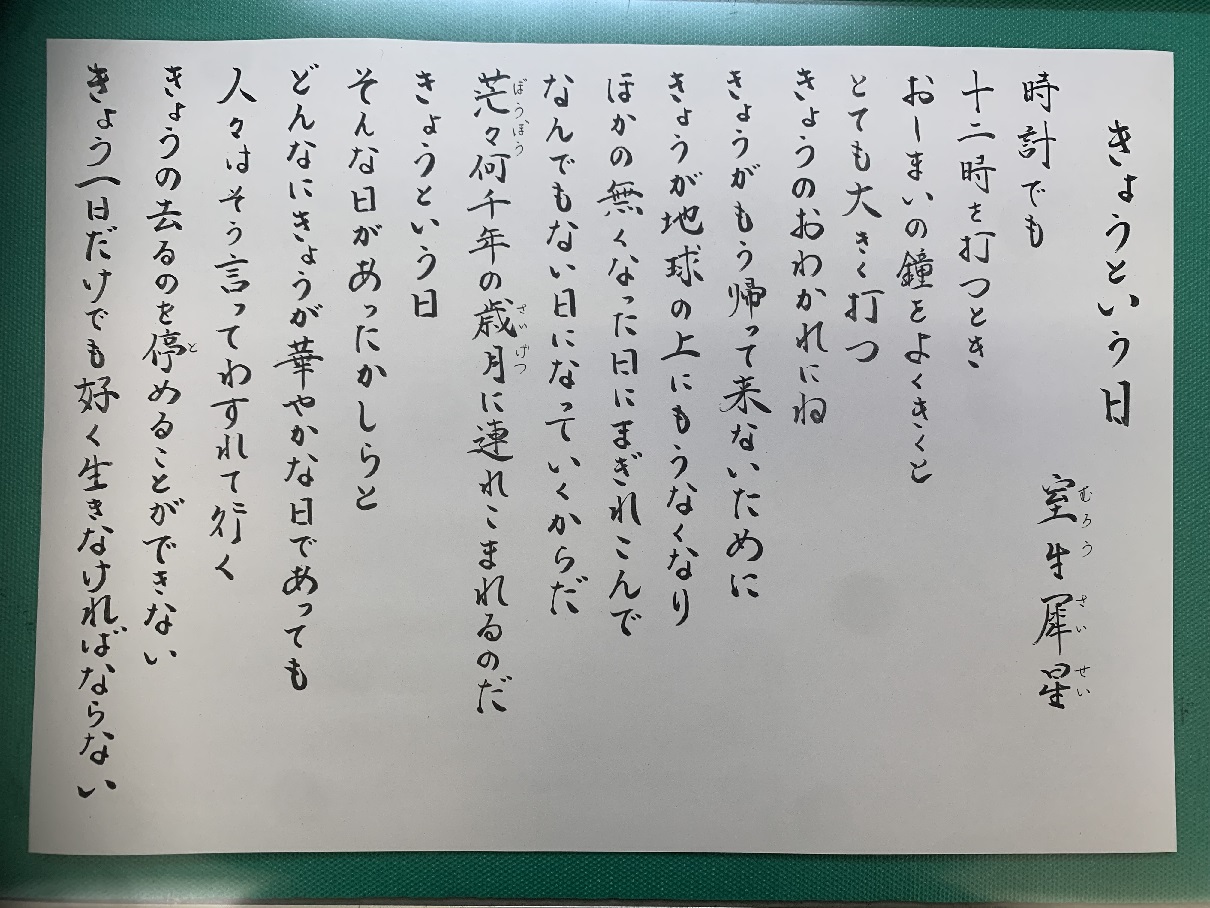 きょうという日
室生犀星
むろうさいせい
時計でも
十二時を打つとき
おしまいの鐘をよくきくと
とても大きく打つ
きょうのおわかれにね
きょうがもう帰って来ないために
きょうが地球の上にもうなくなり
ほかの無くなった日にまぎれこんで
なんでもない日になっていくからだ
茫々何千年の歳月に連れこまれるのだ
ぼうぼう
さいげつ
きょうという日
そんな日があったかしらと
どんなにきょうが華やかな日であっても
人々はそう言ってわすれて行く
きょうの去るのを停めることができない
と
きょう一日だけでも好く生きなければならない